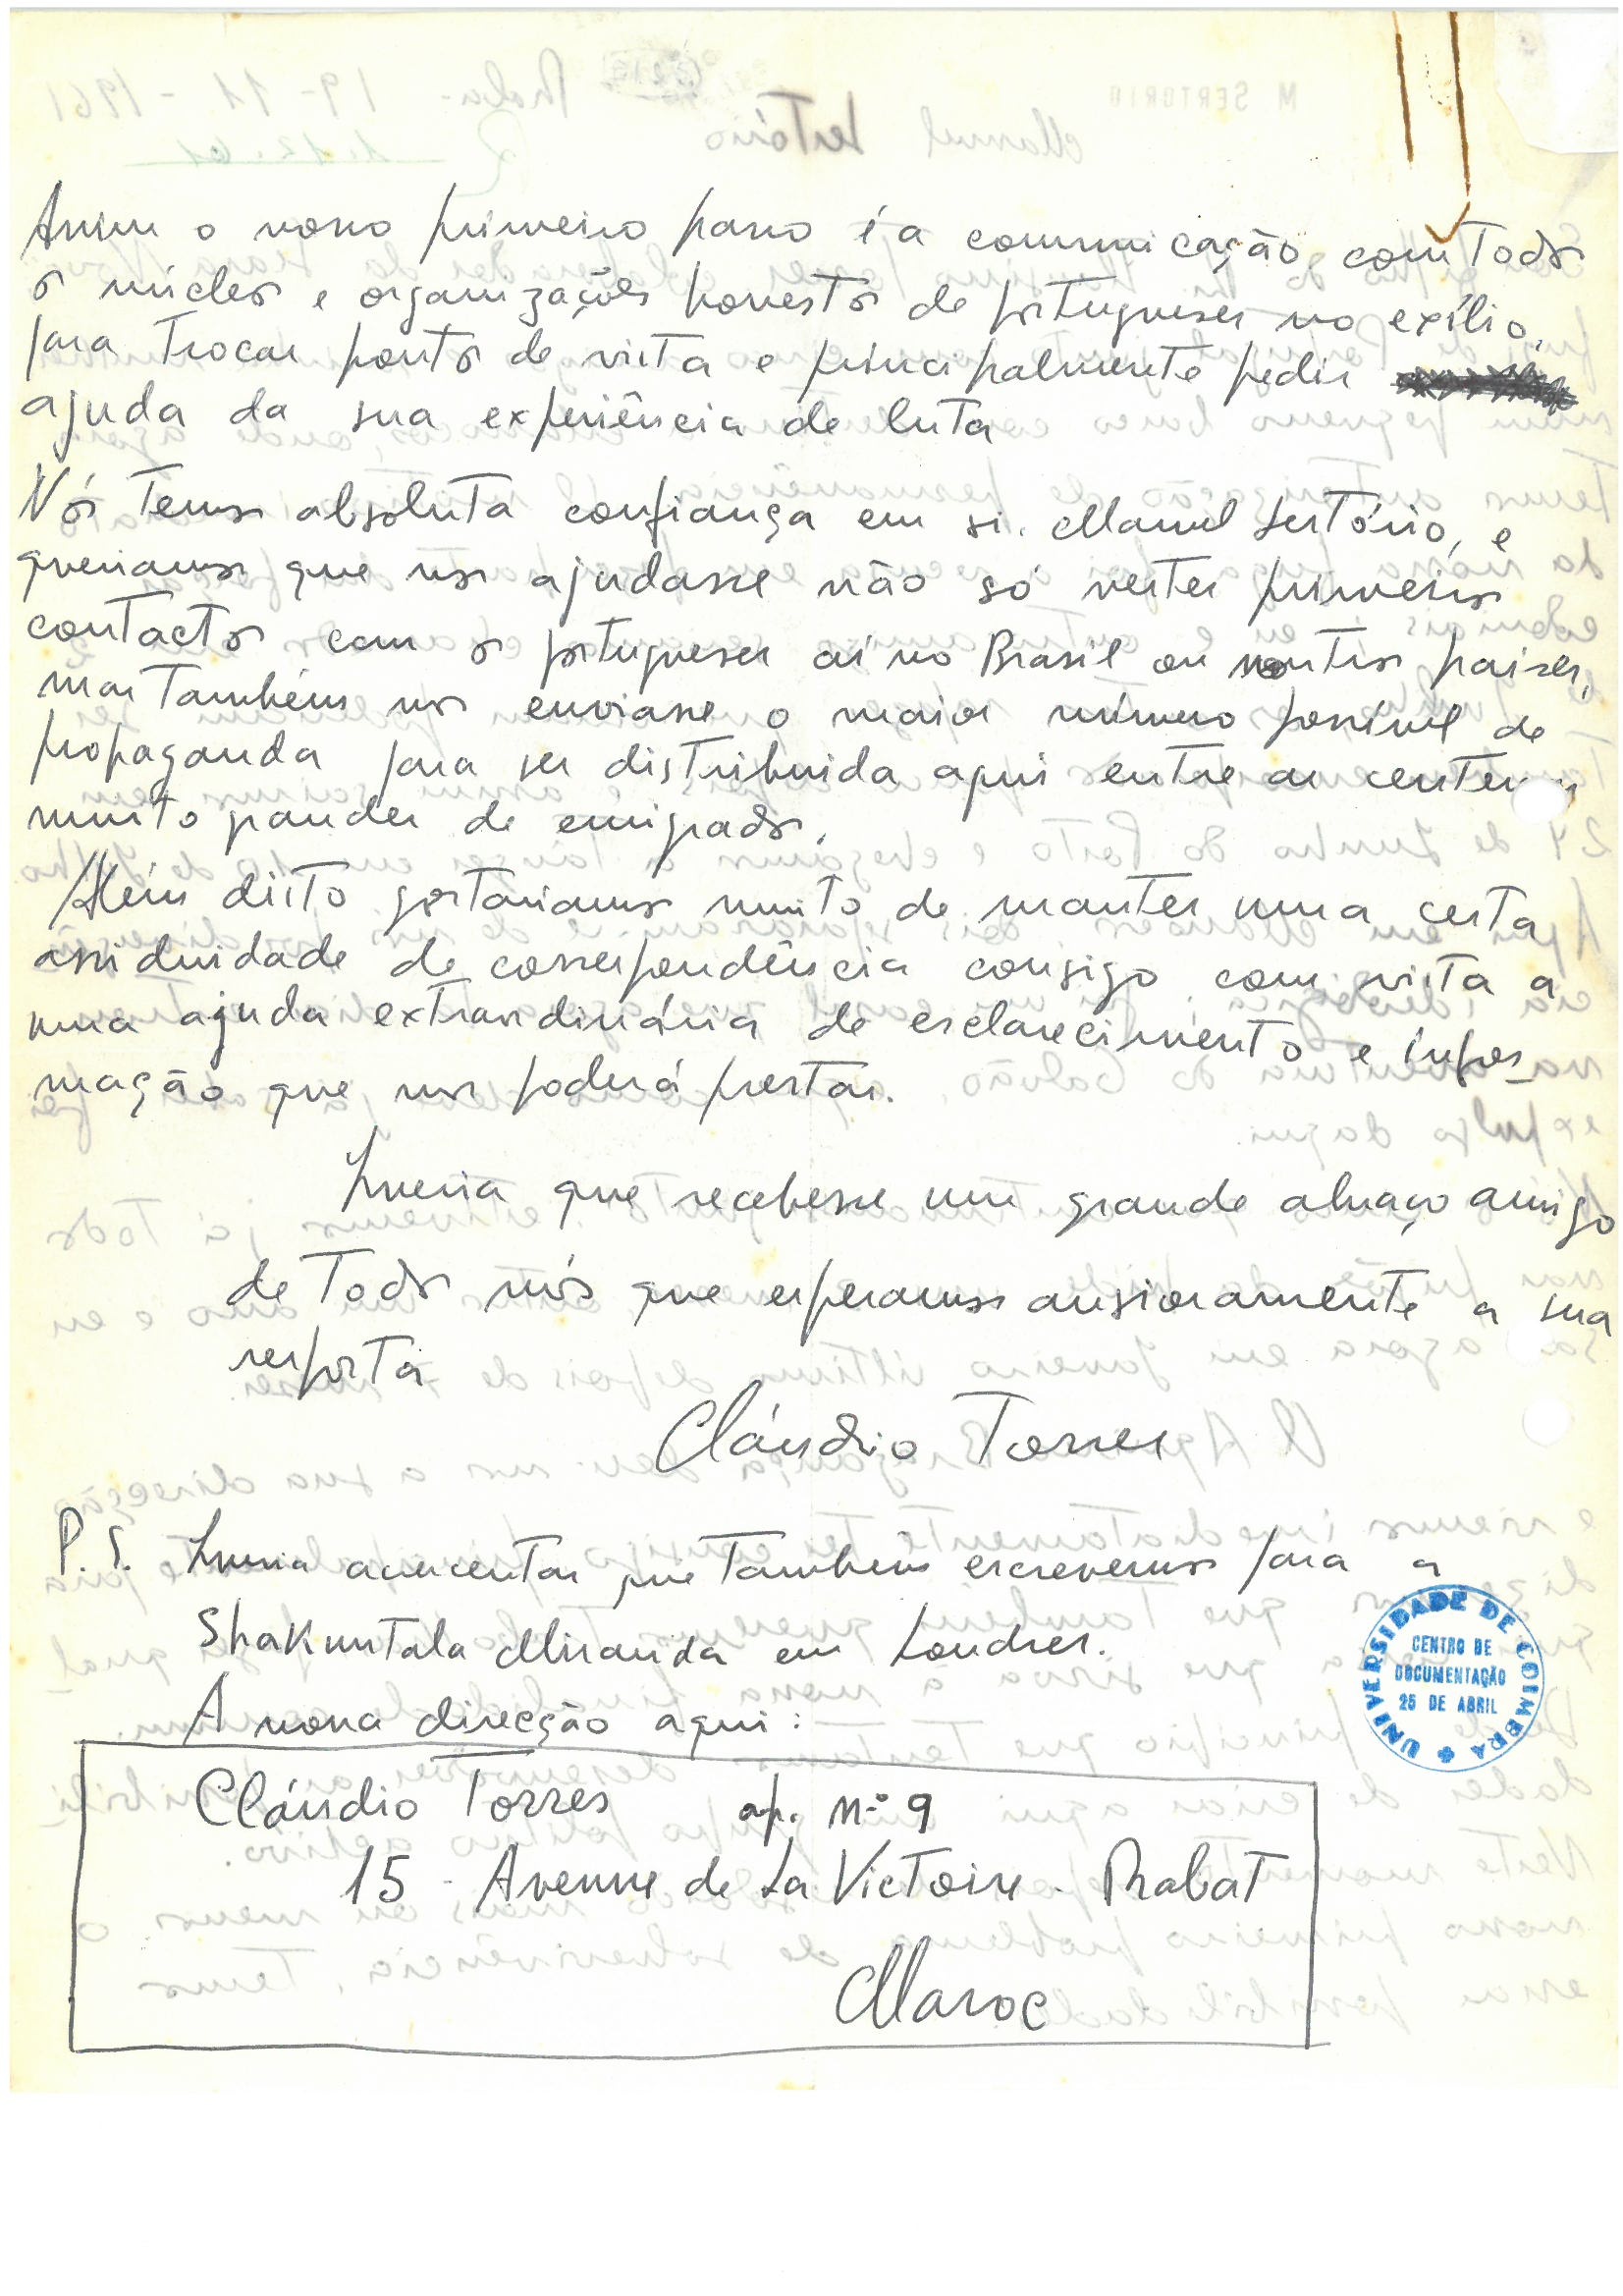 Assim o nosso primeiro passo é a communicação, com todos
os núcleos e organizações honestos de portugueses no exílio,
para trocar pontos de vista e principalmente pedir
ajuda da sua experiência de luta
Nós temos absoluta confiança em si. Manuel Sertório, e
queriamos que nos ajudasse não só nestes primeiros
contactos com os portugueses aí no Brasil ou noutros paises,
mas também nos enviasse o maior número possível de
propaganda para ser distribuida aqui entre as centenas
muito grandes de emigrados.
Além disto gostariamos muito de manter uma certa
assiduidade de correspondência consigo com vista a
uma ajuda extraordinária de esclarecimento e infor_
mação que nos poderá prestar.
Queria que recebesse um grande abraço amigo
de todos nós que esperamos ansiosamente a sua
resposta
Cláudio Torres
P.S. Queria acrescentar que também escrevemos para a
Shakuntala Miranda em Londres.
A nossa direcção aqui:
Cláudio Torres ap. Nº 9
15 - Avenue de La Victoire - Rabat
Maroc
UNIVERSIDADE DE COIMBRA
CENTRO DE
DOCUMENTAÇÃO
25 DE ABRIL